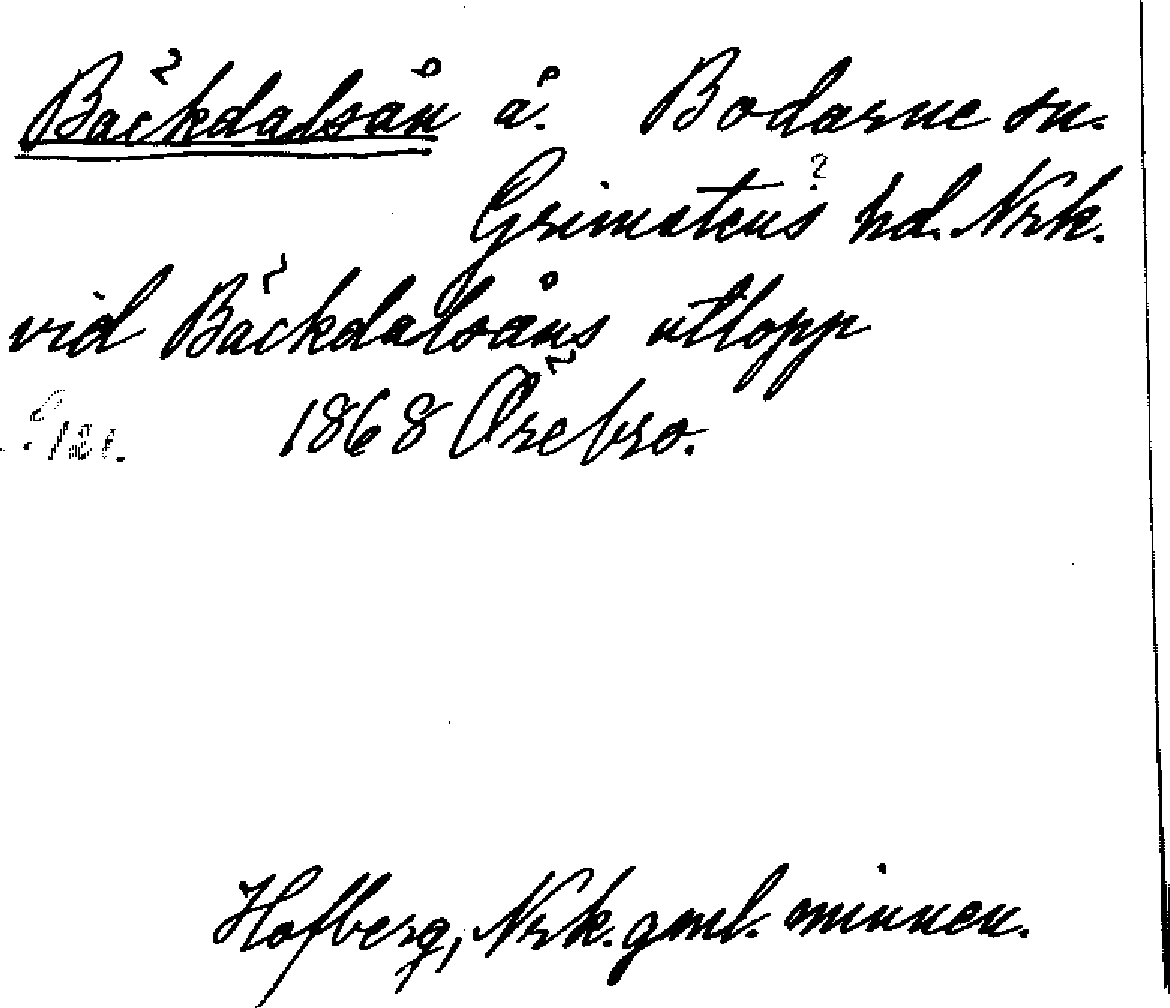 Bäckdalsån å. Bodarne sn.
Grimstens ? hd. Nrk.
vid Bäckdalsåns utlopp
1868 Örebro.
Hofberg, Nrk. gml. minnen.